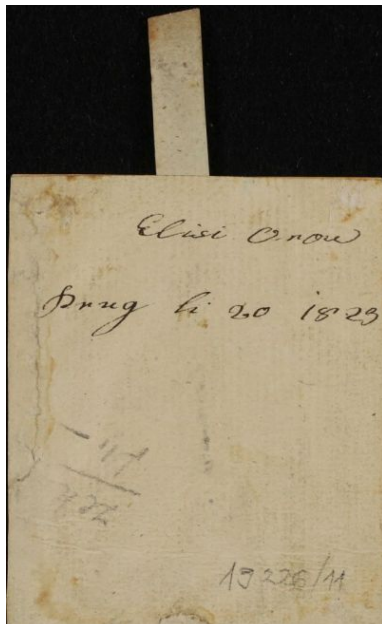 Elisi Orou
Prug li 20 1823
19226/11